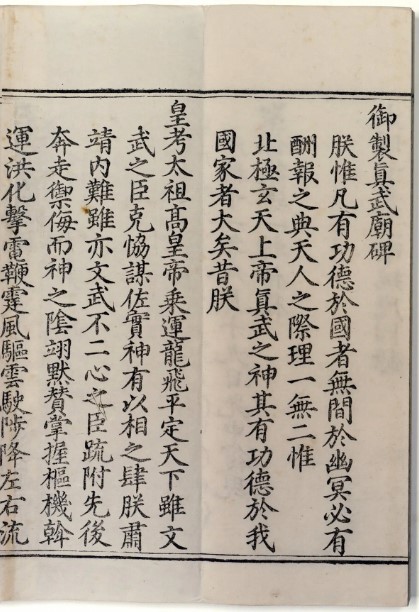 御製真武廟碑
朕惟凡有功德於國者無間於幽冥必有
酬報之典天人之際理一無二惟
北極玄天上帝真武之神其有功德於我
國家者大矣昔朕
皇考太祖高皇帝乘運龍飛平定天下雖文
武之臣克恊謀佐實神有以相之肆朕肅
靖內難雖亦文武不二心之臣疏附先後
奔走禦侮而神之陰翊默賛掌握樞機斡
運洪化擊電鞭霆風驅雲駛陟降左右流